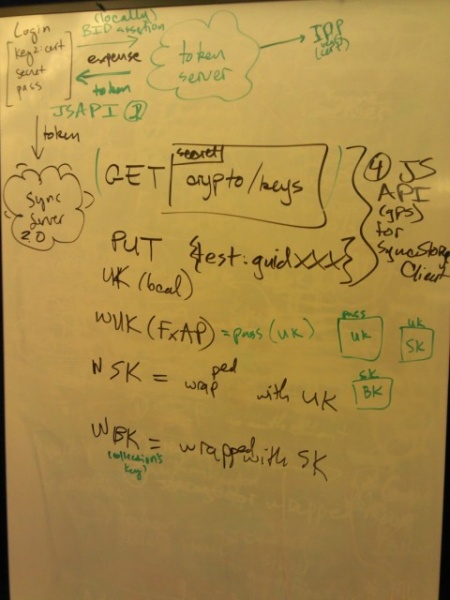 Login
key2: cert
secret
pass
(locally)
BID assertion
expense
token
JSAPI
token
server
IDP
token
Sync
Server
2.0
GET
secret
crypto/keys
PUT {test: guid XXX}
4 JS
API
(gps)
for
SyncStorage
Client
UK (local)
WUK (FxAP) = pass (UK)
pass
UK
UK
SK
WSK = wrapped with UK
SK
BK
WBK = wrapped with SK
(collections
key?)